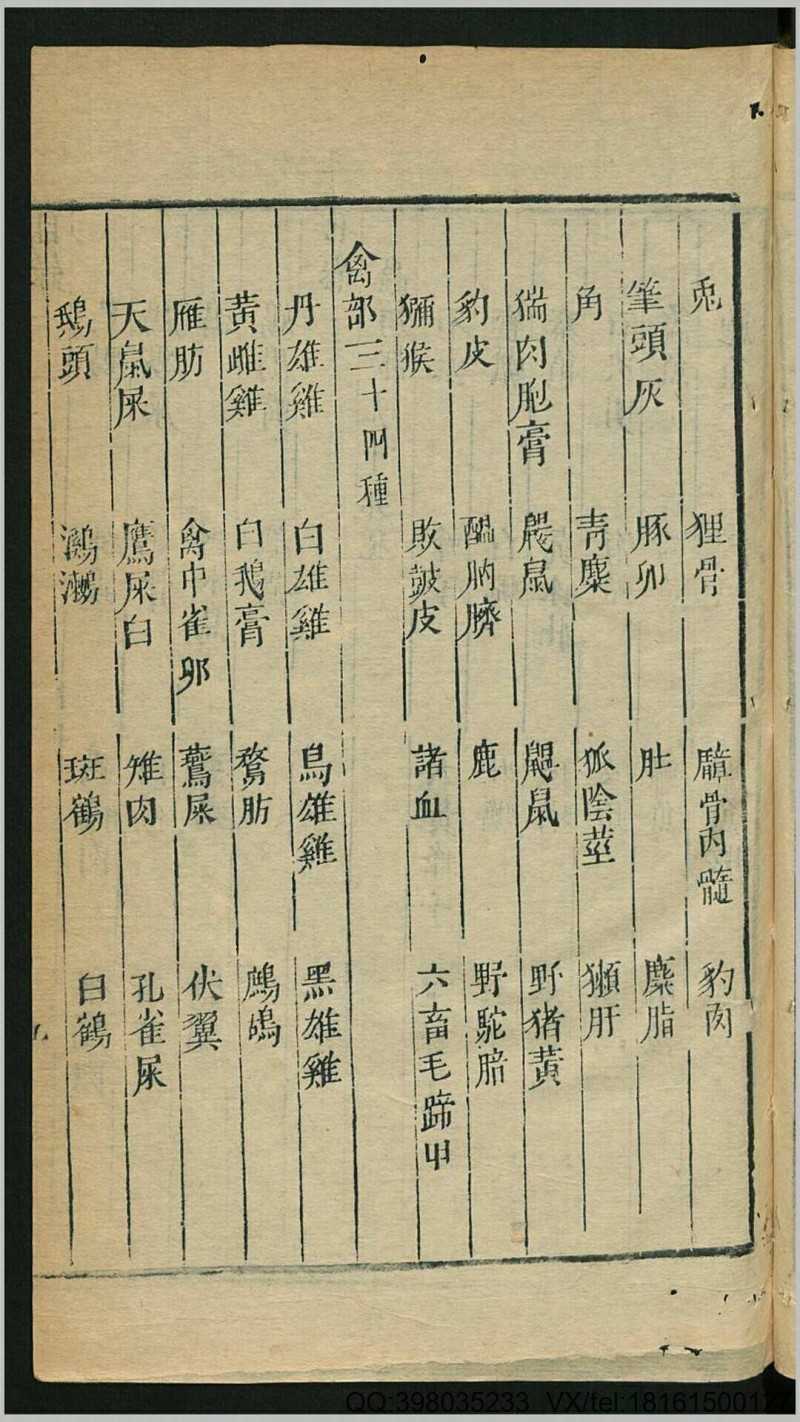 兎 狸骨 麞骨肉髓 豹肉
筆頭灰 豚卵 肚 麋脂
角 青麋 狐陰莖 獺肝
猯肉胞膏 鼹鼠 鼴鼠 野猪黄
豹皮 膃肭臍 鹿 野駝脂
獼猴 敗皷皮 諸血 六畜毛蹄甲
禽部三十四種
丹雄雞 白雄雞 烏雄雞 黑雄雞
黃雌雞 白鵝膏 鶩肪 鷓鴣
雁肪 禽中雀卵 鷰屎 伏翼
天鼠屎 鷹屎白 雉肉 孔雀屎
鴟頭 鸂鶒 斑鶴 白鶴
QQ:398035233 VX/tel:181615001